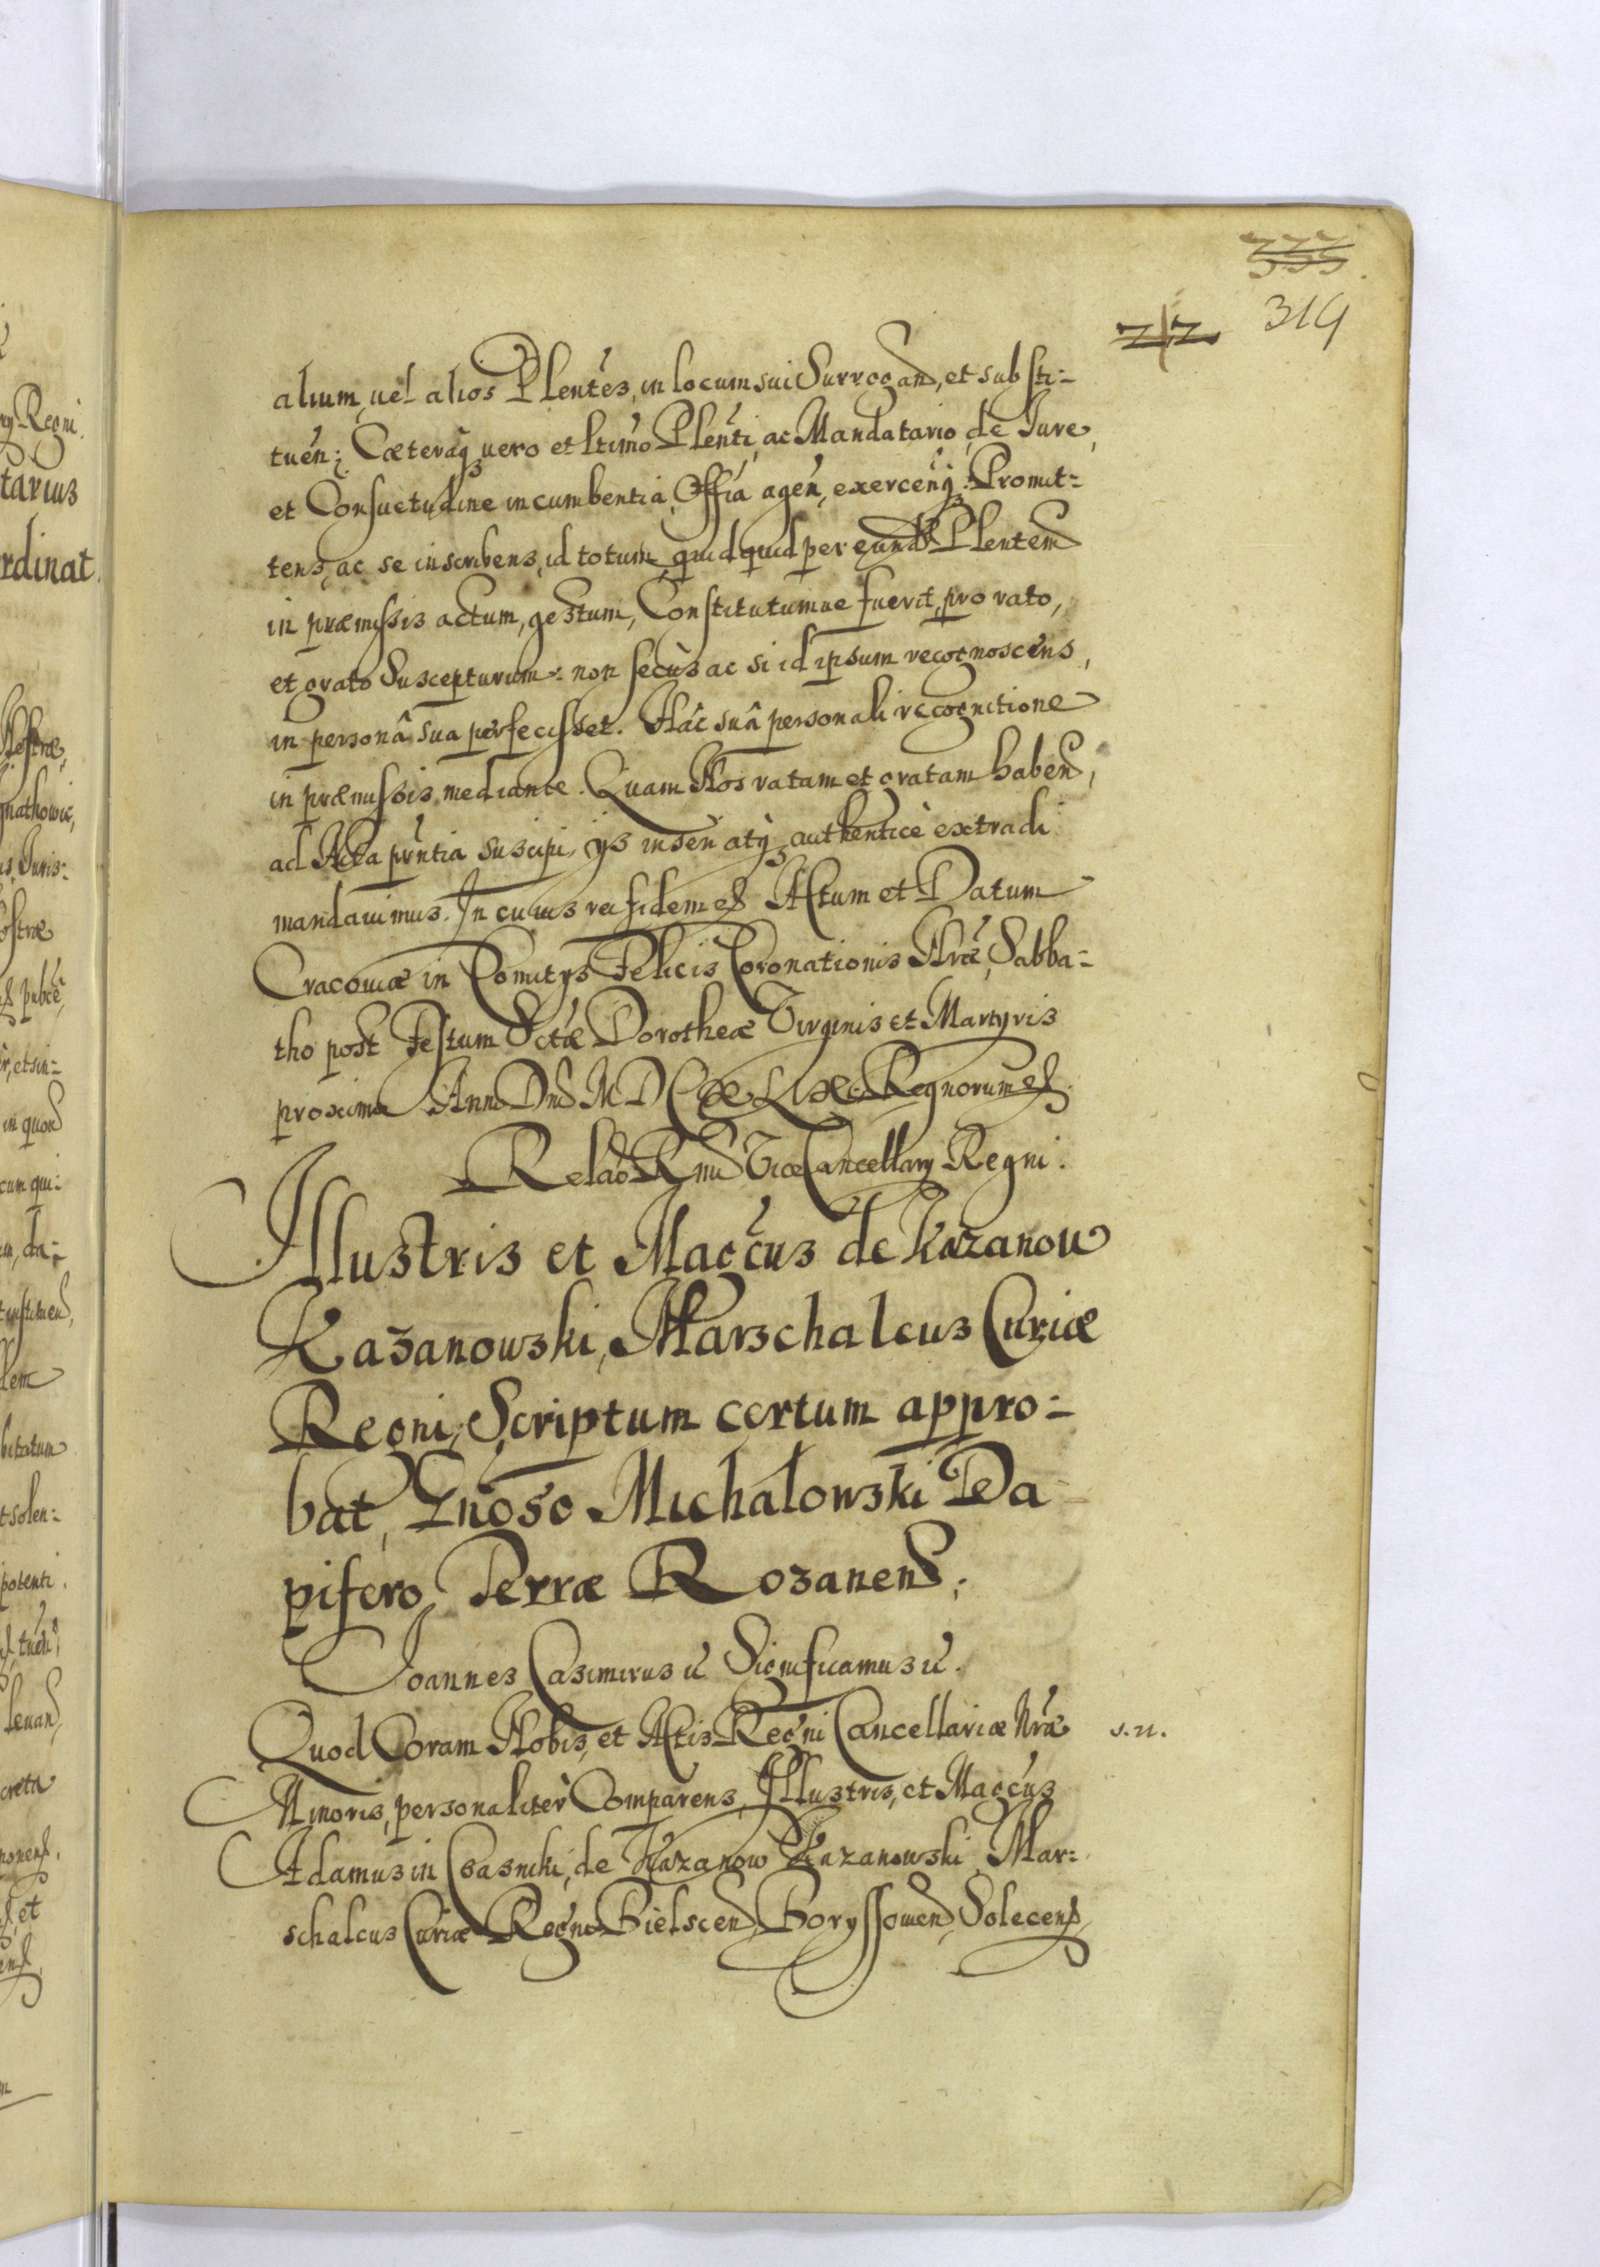 333
z z 319
alium, uel alios Plentes, in locum sui Surrogand, et substi:
tuen: Caeteraq uero et ltimo Plenti, ac Mandatario, de Iure,
et Consuetudine incumbentia, Offia agen, exercenq. Promit:
tens, ac se inscribens, id totum quidquid per eund Plentem
in praemissis actum, gestum, Constitutumue fuerit, pro rato,
et grato Suscepturum: non secus ac si id ipsum recognoscens,
in persona sua perfecisset. Hac sua personali recognitione
in praemissis mediante. Quam Nos ratam et gratam haben,
ad Acta pntia suscipi, ijs inseri atq authentice extradi
mandauimus. In cuius rei fidem etc. Actum et Datum
Cracouiae in Comitijs Felicis Coronationis Nrae, Sabba:
tho post Festum Sctae Dorotheae Virginis et Martyris
proximo Anno Dni M D C XLIX. Regnorum etc.
Relao Rndi Vice Cancellarij Regni.
Illustris et Magcus de Kazanow
Kazanowski, Marschalcus Curiae
Regni, Scriptum certum appro:
bat, Gnoso Michalowski Da
pifero Terrae Rozanens.
Ioannes Casimirus etc Significamus etc.
Quod Coram Nobis, et Actis Regni Cancellariae Nrae
Minoris, personaliter Comparens, Illustris, et Magcus
Adamus in Czasniki, de Kazanow Kazanowski, Mar:
schalcus Curiae Regni Bielscen, Boryssowen, Solecens,